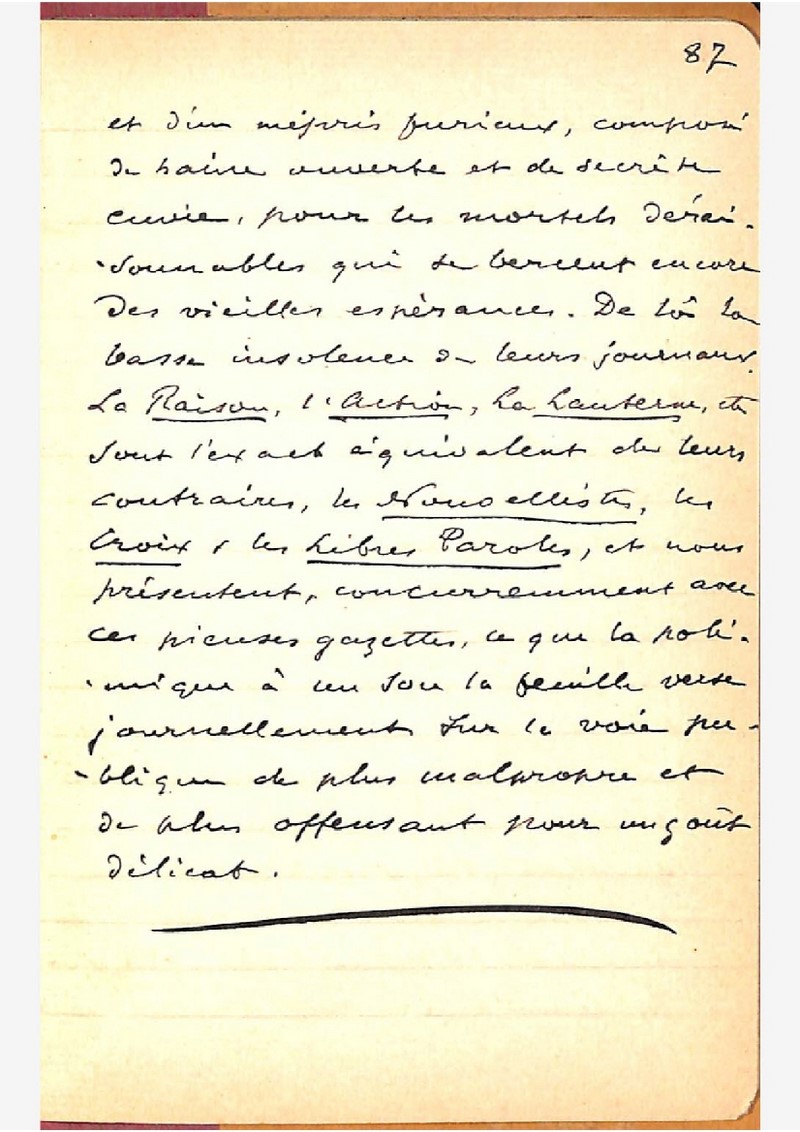 87
et d'un mépris furieux, composé
de haine ouverte et de secrète
envie, pour les mortels dérai-
-sonnables qui se bercent encore
des vieilles espérances. De là la
basse insolence de leurs journaux.
La Raison, l'Action, La Lanterne, etc
sont l'exact équivalent de leurs
contraires, les Nouvellistes, les
Croix & les Libres Paroles, et nous
présentent, concurremment avec
ces pieuses gazettes, ce que la polé-
-mique à un sou la feuille verse
journellement sur la voie pu-
-blique de plus malpropre et
de plus offensant pour un goût
délicat.